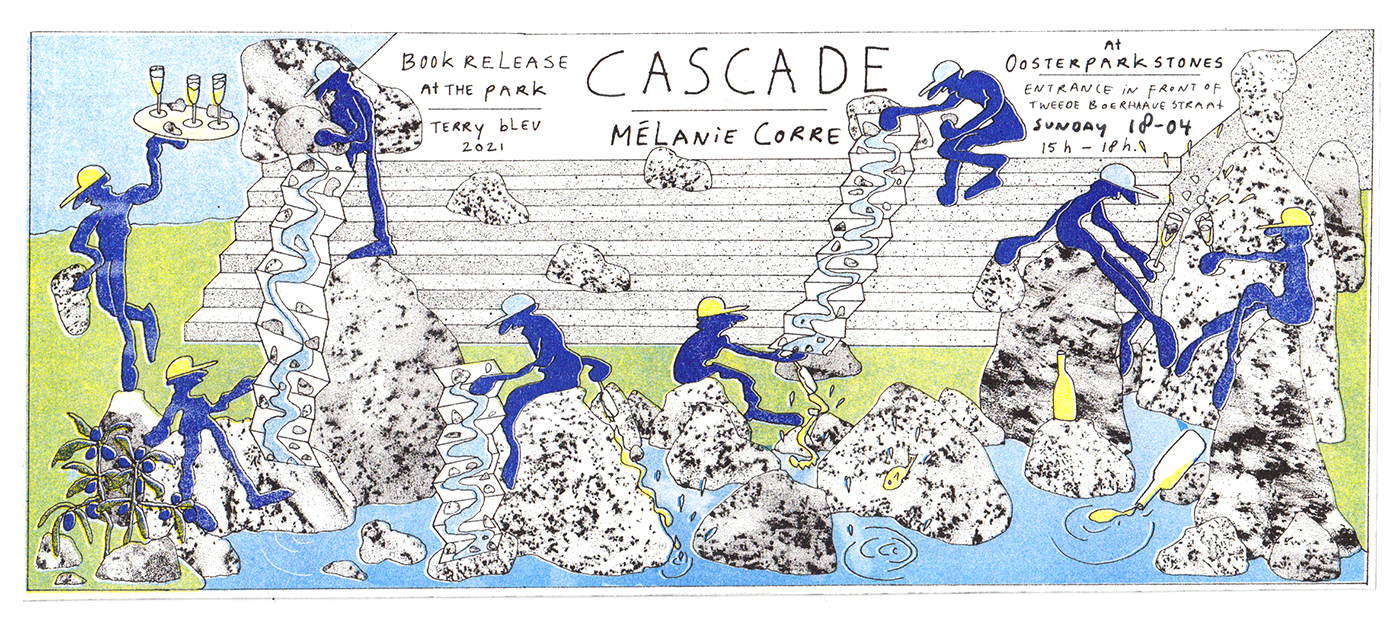 BOOK RELEASE
AT THE PARK
TERRY bLEU
2021
CASCADE
MÉLANiE CORRE
AT
OOSTERPARKSTONES
ENTRANCE iN FRONT OF
TWEEDE BOERHAAVE STRAAt
SUNDAY 18-04
15h - 18h.